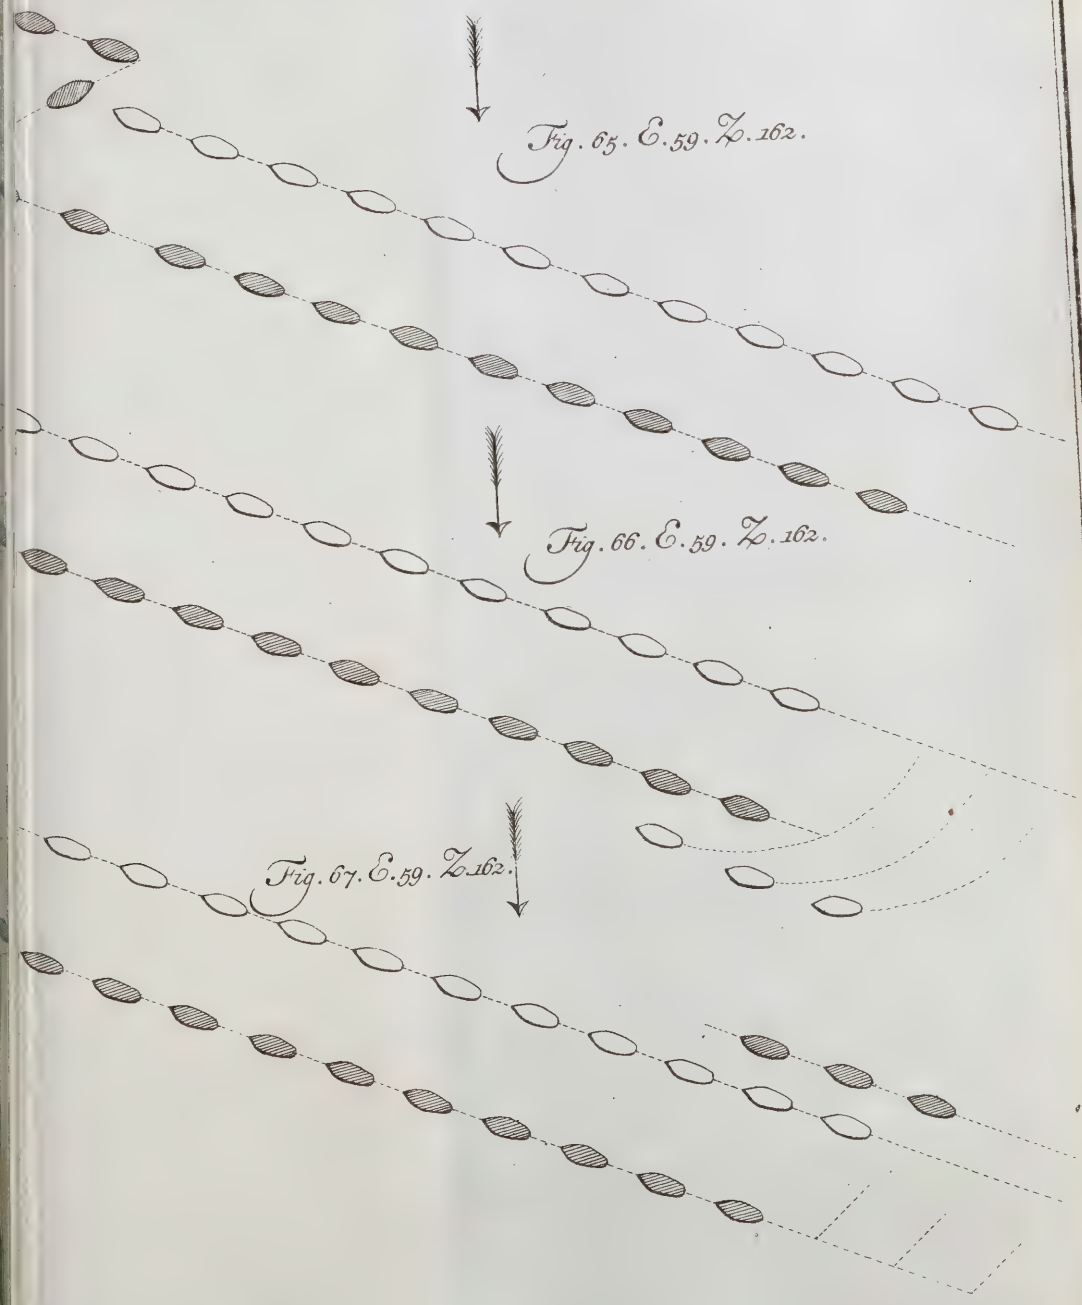 Fig. 65. E. 59. Z. 162.
Fig. 66. E. 59. Z. 162.
Fig. 67. E. 59. Z. 162.